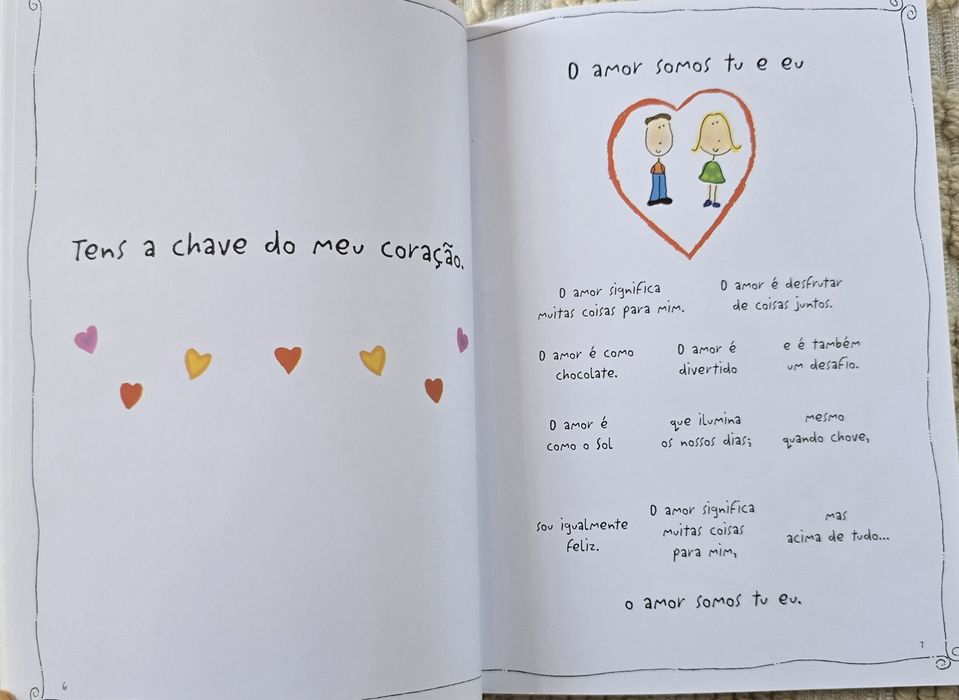 Tens a chave do meu coração.
6
O amor somos tu e eu
O amor significa
muitas coisas para mim.
O amor é desfrutar
de coisas juntos.
O amor é como
chocolate.
O amor é
divertido
e é também
um desafio.
O amor é
como o Sol
que ilumina
os nossos dias;
mesmo
quando chove,
sou igualmente
feliz.
O amor significa
muitas coisas
para mim,
mas
acima de tudo...
o amor somos tu eu.
7